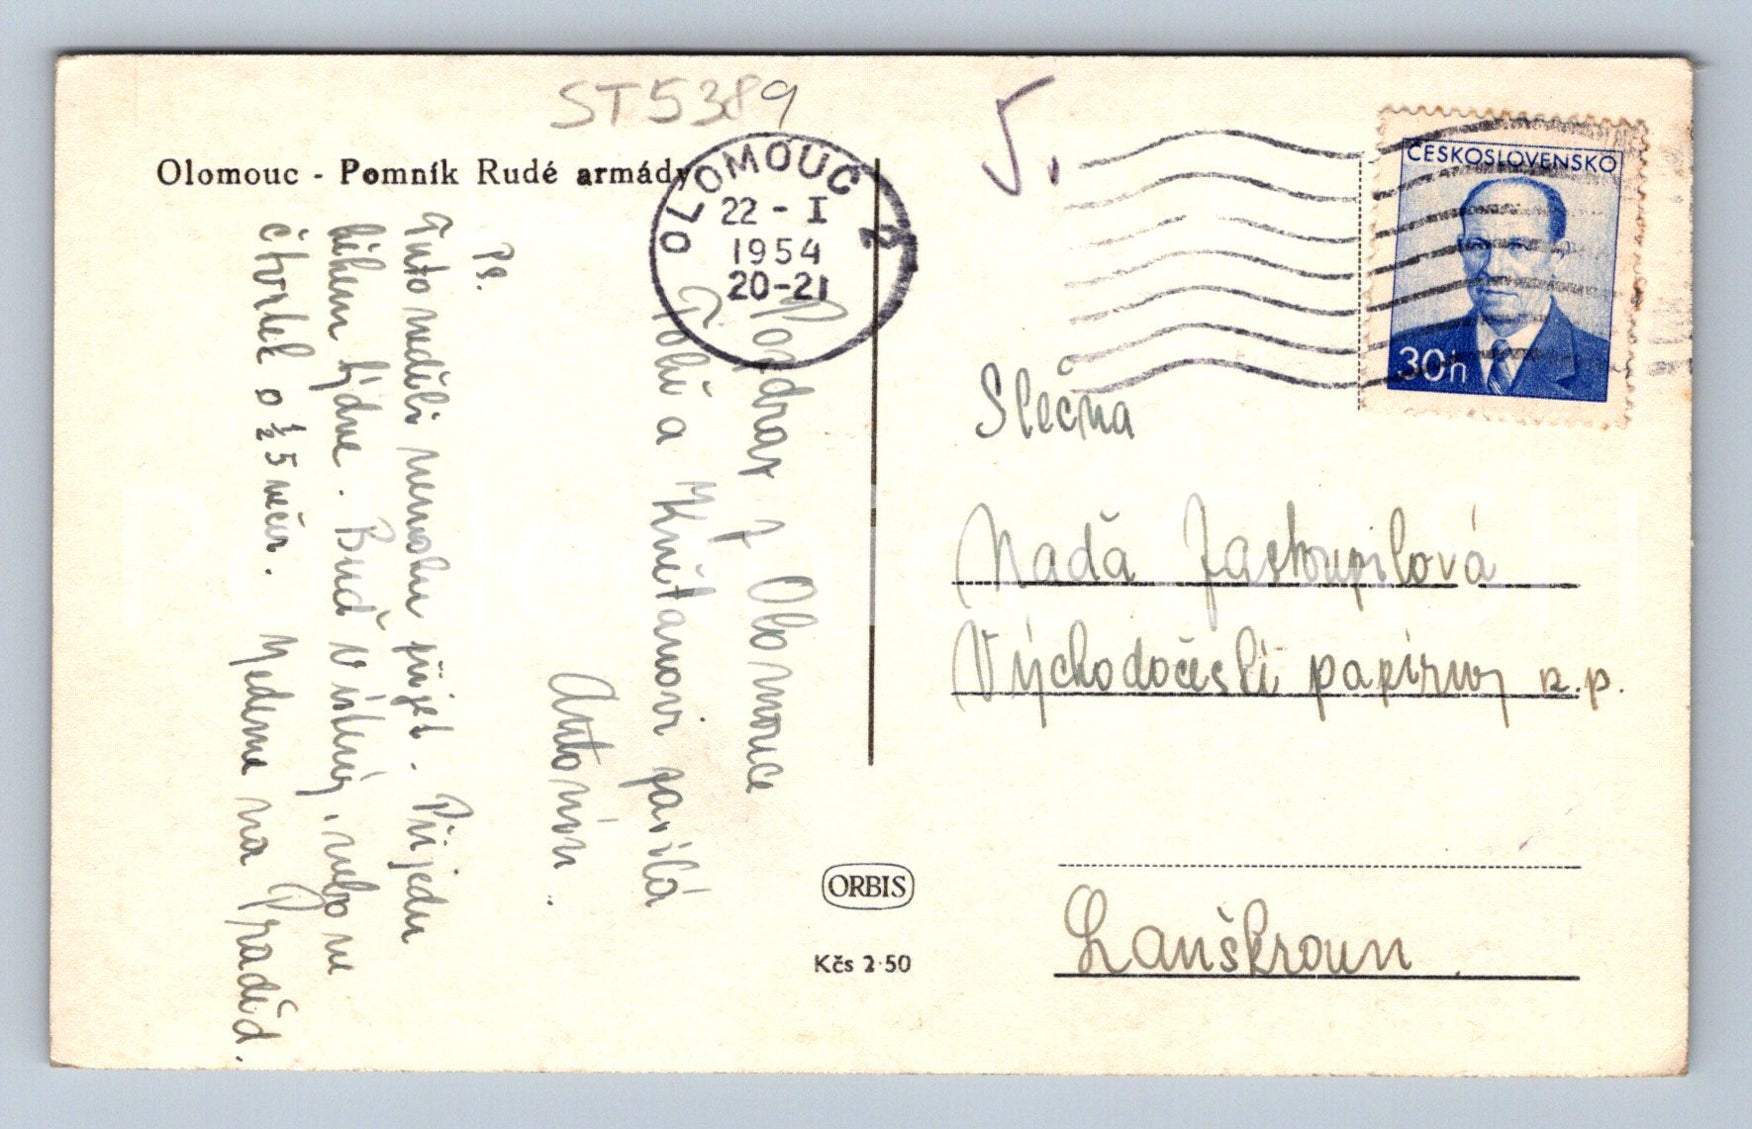 ST5389
5.
Olomouc - Pomník Rudé armády
OLOMOUC 2
22 - I
1954
20-21
ČESKOSLOVENSKO
30h
Pozdrav z Olomouce
Tobě a Květanovi posílá
Antonín.
Ps.
Tuto neděli nemohu přijet. Přijedu
během týdne. Buď v ústavy, nebo ve
čtvrtek o ½ 5 večer. Jedeme na Praděd.
Slečna
Naďa Zastoupilová
Východočeské papírny n.p.
Lanškroun.
ORBIS
Kčs 2·50